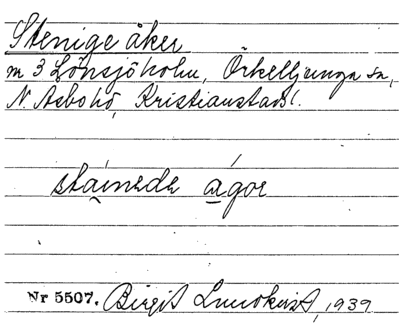 Stenige åker
m 3 Lönsjöholm, Örkelljunga sn,
N. Åsbo hd, Kristianstads l.
stainede agor
Nr 5507. Birgit Lundkvist, 1939